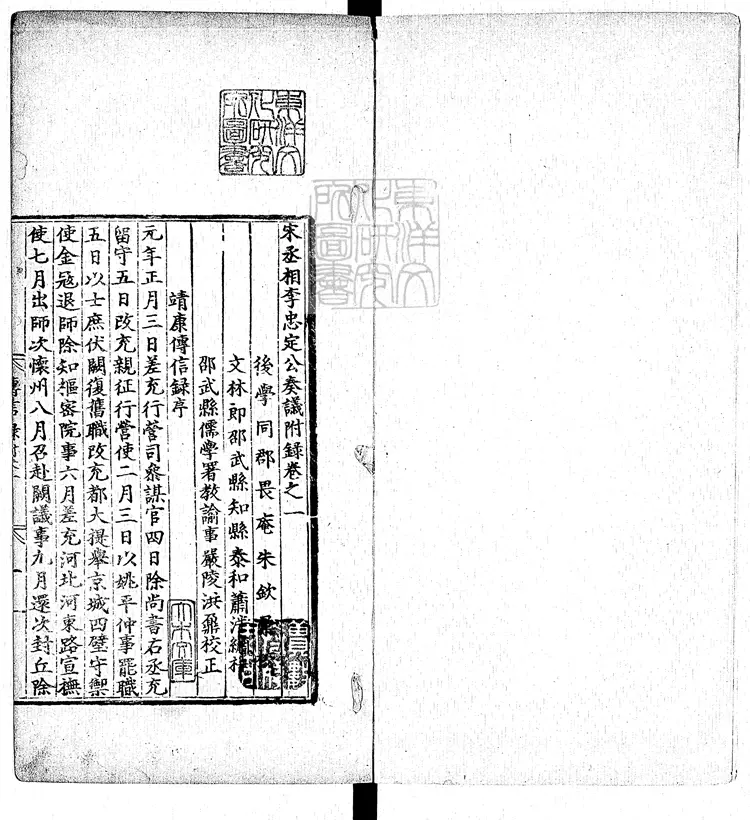 宋丞相李忠定公奏議附録卷之一
後學同郡畏庵朱欽
文林郎邵武縣知縣泰和蕭泮
邵武縣儒學署教諭事嚴陵洪鼐校正
靖康傳信録序
元年正月三日差充行營司叅謀官四日除尚書右丞充
留守五日改充親征行營使二月三日以姚平仲事罷職
五日以士庶伏闕復舊職改充都大提舉京城四壁守禦
使金冦退師除知樞密院事六月差充河北河東路宣撫
使七月出師次懷州八月召赴闕議事九月還次封丘除
東洋文化研究所圖書
大木文庫